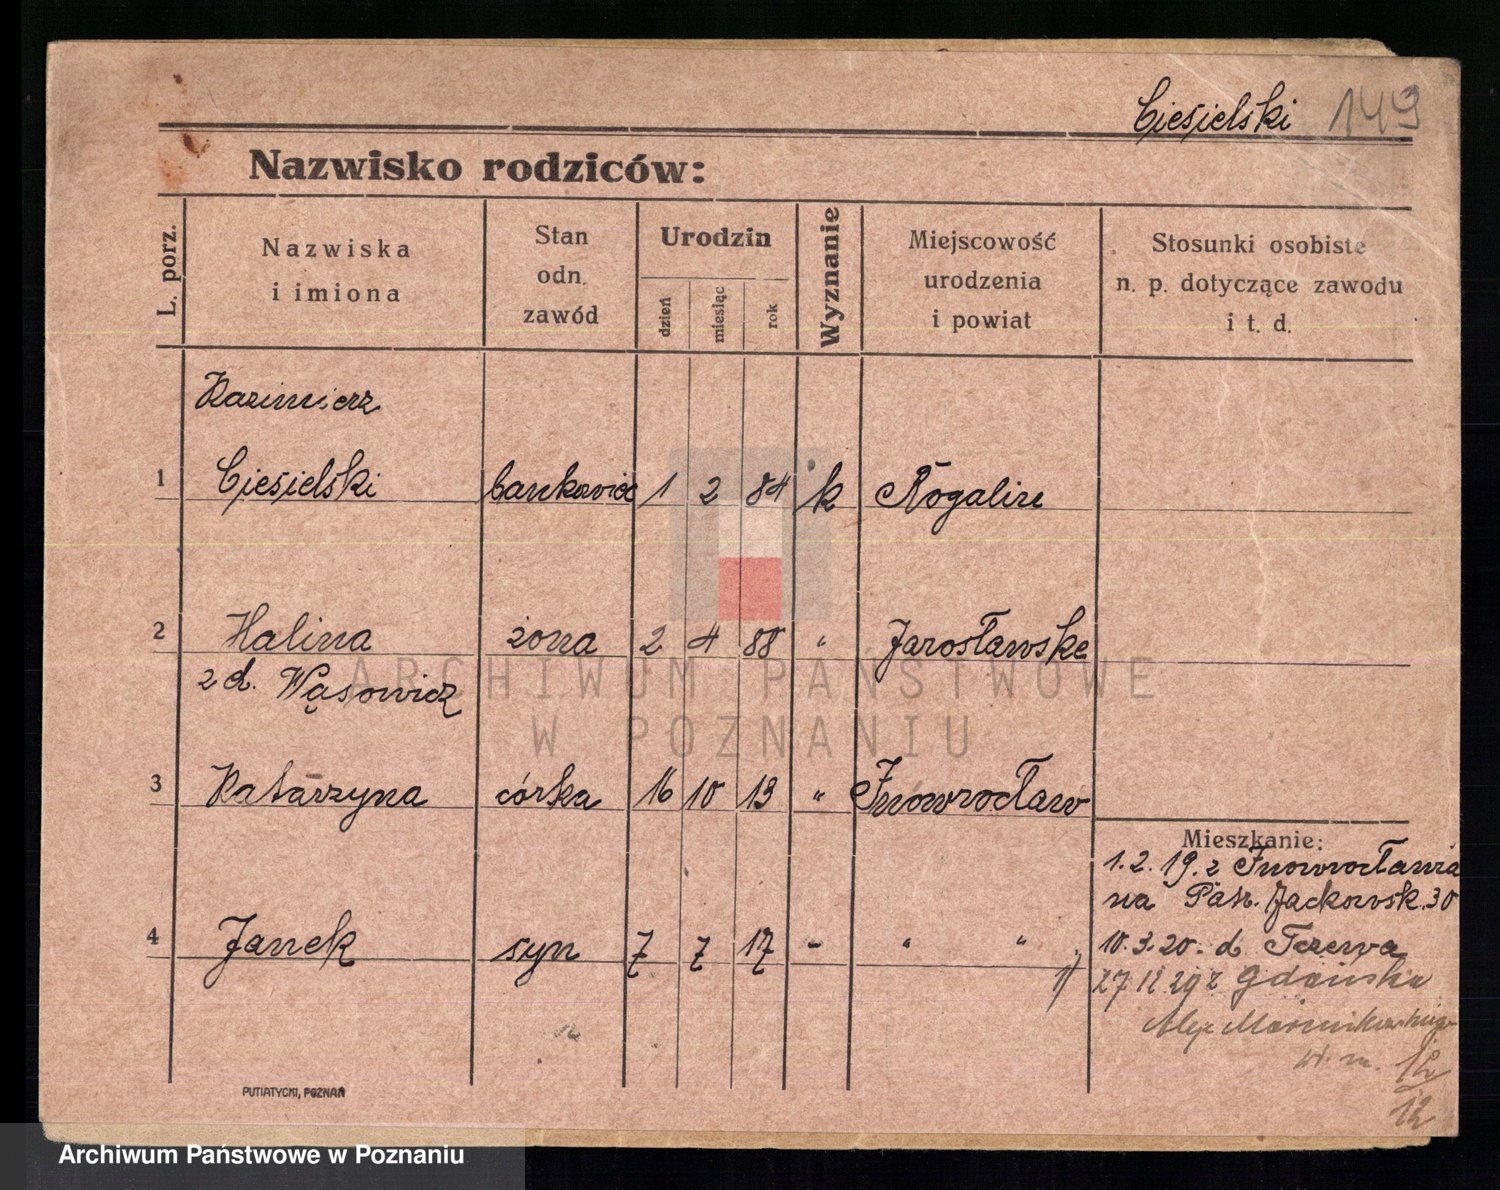 Ciesielski 149
Nazwisko rodziców:
L. porz.
Nazwiska
i imiona
Stan
odn.
zawód
Urodzin
dzień
miesiąc
rok
Wyznanie
Miejscowość
urodzenia
i powiat
Stosunki osobiste
n. p. dotyczące zawodu
i t. d.
Kazimierz
1 Ciesielski bankowiec 1 2 84 k Rogalin
2 Halina żona 2 4 88 " Jarosławske
z d. Wąsowicz
3 Katarzyna córka 16 10 13 " Inowrocław
Mieszkanie:
1.2.19. z Inowrocławia
na Patr. Jackowsk. 30
4 Janek syn 7 7 17 - " "
10.3.20. d. Tczewa
27 12 29 z Gdańska
Alej Marcinkowskiego
12
12
PUTIATYCKI, POZNAŃ
ARCHIWUM PAŃSTWOWE
W POZNANIU
Archiwum Państwowe w Poznaniu